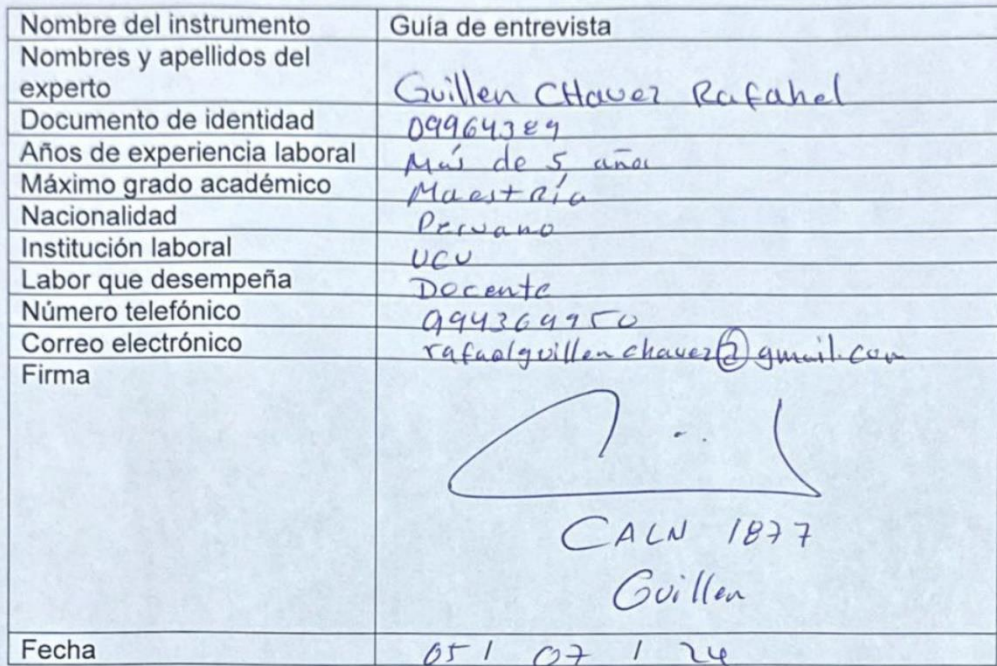 Nombre del instrumento Guía de entrevista
Nombres y apellidos del
experto Guillen CHavez Rafahel
Documento de identidad 09964389
Años de experiencia laboral Más de 5 años
Máximo grado académico Maestría
Nacionalidad Peruano
Institución laboral UCV
Labor que desempeña Docente
Número telefónico 994369950
Correo electrónico rafaelguillenchavez@gmail.com
Firma
CALN 1877
Guillen
Fecha 05 / 07 / 24